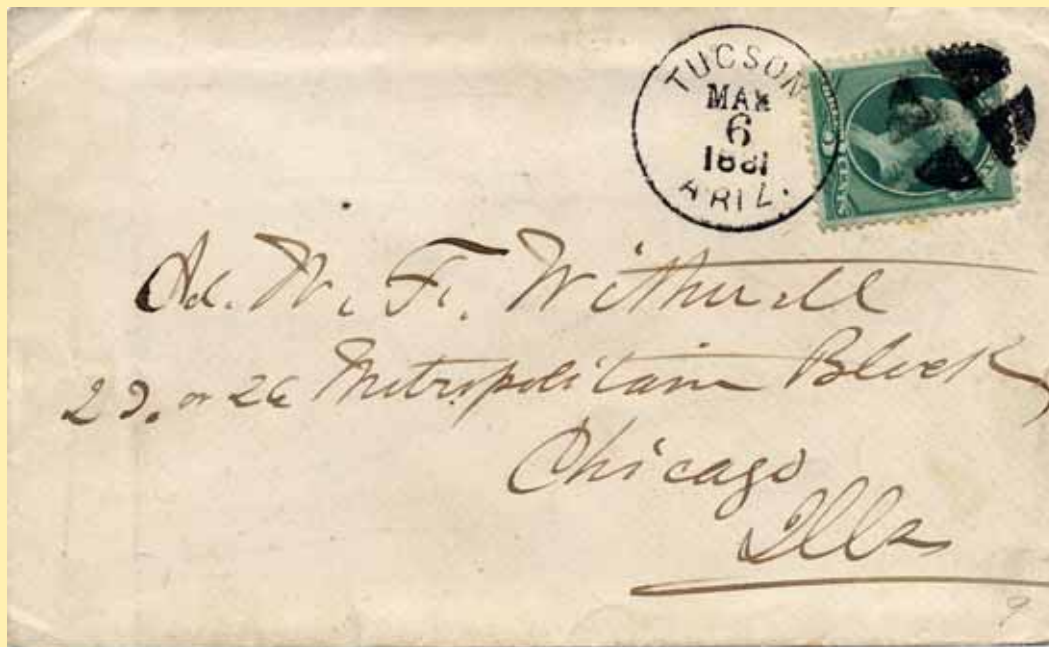 TUCSON
MAR
6
1881
ARIZ.
W. F. Witherell
or 26 Metropolitain Block
Chicago
Ills